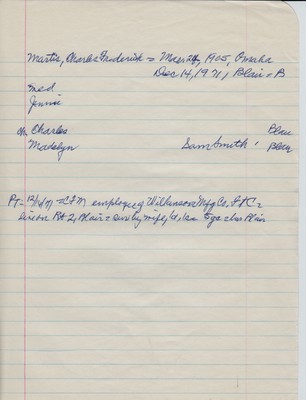 Martis, Charles Frederick = Mar 24, 1905, Omaha
Dec 14, 1971, Blair - B
Med
Jennie
ch. Charles Blair
Madelyn Sam Smith, Blair
PT - 12/16/71 = CFM employee of Wilkinson Mfg Co, F.C =
Rt 2, Blair = surv by wife, Blair